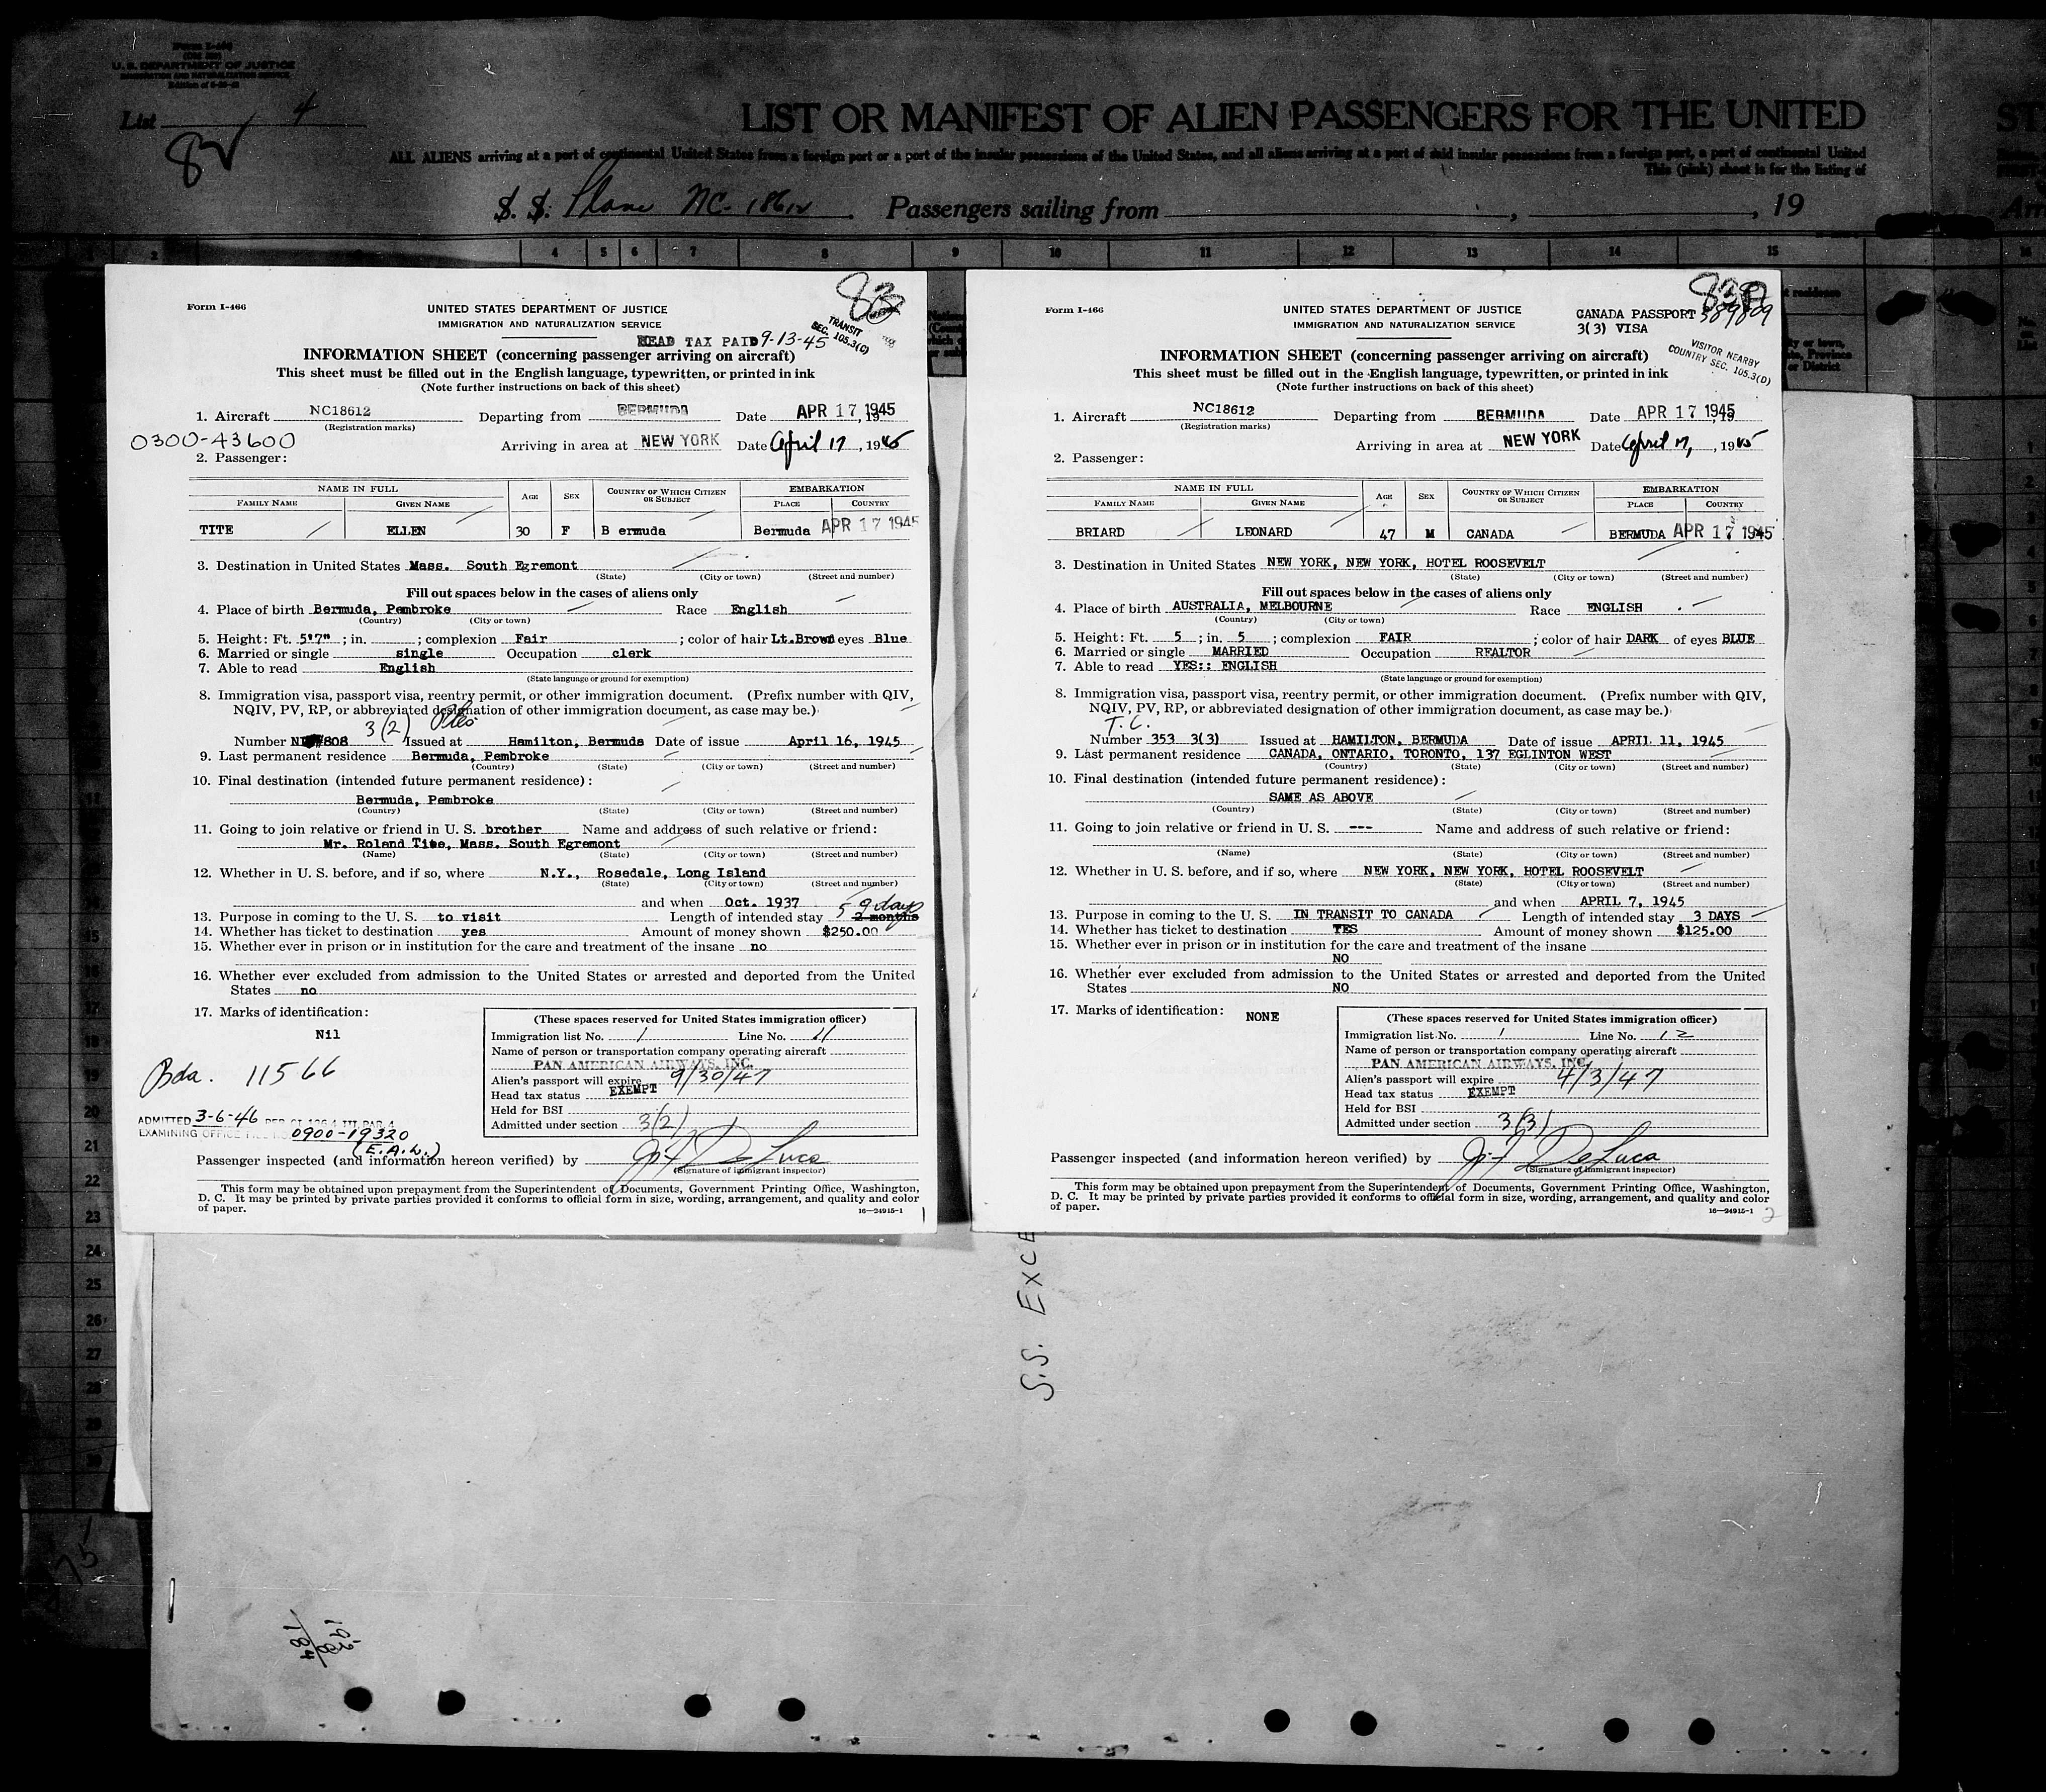 Form I-466
U. S. DEPARTMENT OF JUSTICE
IMMIGRATION AND NATURALIZATION SERVICE
List 4
82
LIST OR MANIFEST OF ALIEN PASSENGERS FOR THE UNITED
ALL ALIENS arriving at a port of continental United States from a foreign port or a port of the insular possessions of the United States, and all aliens arriving at a port of said insular possessions from a foreign port, a port of continental United
This (pink) sheet is for the listing of
S. S. Plane NC-18612 Passengers sailing from , , 19
1 2 4 5 6 7 8 9 10 11 12 13 14 15 16
83
Form I-466
UNITED STATES DEPARTMENT OF JUSTICE
IMMIGRATION AND NATURALIZATION SERVICE
TRANSIT
SEC. 105.3(C)
HEAD TAX PAID 9-13-45
INFORMATION SHEET (concerning passenger arriving on aircraft)
This sheet must be filled out in the English language, typewritten, or printed in ink
(Note further instructions on back of this sheet)
1. Aircraft NC18612 Departing from BERMUDA Date APR 17 1945, 19
(Registration marks)
0300-43600
Arriving in area at NEW YORK Date April 17, 1945
2. Passenger:
NAME IN FULL AGE SEX COUNTRY OF WHICH CITIZEN OR SUBJECT EMBARKATION
FAMILY NAME GIVEN NAME PLACE COUNTRY
TITE ELLEN 30 F B ermuda Bermuda APR 17 1945
3. Destination in United States Mass. South Egremont
(State) (City or town) (Street and number)
Fill out spaces below in the cases of aliens only
4. Place of birth Bermuda, Pembroke Race English
(Country) (City or town)
5. Height: Ft. 5'7" ; in. ; complexion Fair ; color of hair Lt.Brown eyes Blue
6. Married or single single Occupation clerk
7. Able to read English
(State language or ground for exemption)
8. Immigration visa, passport visa, reentry permit, or other immigration document. (Prefix number with QIV,
NQIV, PV, RP, or abbreviated designation of other immigration document, as case may be.)
3(2)
Number 808 Issued at Hamilton, Bermuda Date of issue April 16, 1945
9. Last permanent residence Bermuda, Pembroke
(Country) (State) (City or town) (Street and number)
10. Final destination (intended future permanent residence):
Bermuda, Pembroke
(Country) (State) (City or town) (Street and number)
11. Going to join relative or friend in U. S. brother Name and address of such relative or friend:
Mr. Roland Tite, Mass. South Egremont
(Name) (State) (City or town) (Street and number)
12. Whether in U. S. before, and if so, where N.Y., Rosedale, Long Island
(State) (City or town) (Street and number)
and when Oct. 1937
9 days
13. Purpose in coming to the U. S. to visit Length of intended stay 5 2 months
14. Whether has ticket to destination yes Amount of money shown $250.00
15. Whether ever in prison or in institution for the care and treatment of the insane no
16. Whether ever excluded from admission to the United States or arrested and deported from the United
States no
17. Marks of identification:
Nil
(These spaces reserved for United States immigration officer)
Immigration list No. 1 Line No. 11
Name of person or transportation company operating aircraft
PAN AMERICAN AIRWAYS, INC.
Alien's passport will expire 9/30/47
Head tax status EXEMPT
Held for BSI
Admitted under section 3(2)
Bda. 11566
ADMITTED 3-6-46
EXAMINING OFFICE 0900-19320
(E.A.W.)
Passenger inspected (and information hereon verified) by Jos. F. DeLuca
(Signature of immigrant inspector)
This form may be obtained upon prepayment from the Superintendent of Documents, Government Printing Office, Washington,
D. C. It may be printed by private parties provided it conforms to official form in size, wording, arrangement, and quality and color
of paper.
16—24915-1
1
Form I-466
UNITED STATES DEPARTMENT OF JUSTICE
IMMIGRATION AND NATURALIZATION SERVICE
CANADA PASSPORT 389809
3(3) VISA
VISITOR NEARBY
COUNTRY SEC. 105.3(D)
INFORMATION SHEET (concerning passenger arriving on aircraft)
This sheet must be filled out in the English language, typewritten, or printed in ink
(Note further instructions on back of this sheet)
1. Aircraft NC18612 Departing from BERMUDA Date APR 17 1945, 19
(Registration marks)
Arriving in area at NEW YORK Date April 17, 1945
2. Passenger:
NAME IN FULL AGE SEX COUNTRY OF WHICH CITIZEN OR SUBJECT EMBARKATION
FAMILY NAME GIVEN NAME PLACE COUNTRY
BRIARD LEONARD 47 M CANADA BERMUDA APR 17 1945
3. Destination in United States NEW YORK, NEW YORK, HOTEL ROOSEVELT
(State) (City or town) (Street and number)
Fill out spaces below in the cases of aliens only
4. Place of birth AUSTRALIA, MELBOURNE Race ENGLISH
(Country) (City or town)
5. Height: Ft. 5 ; in. 5 ; complexion FAIR ; color of hair DARK of eyes BLUE
6. Married or single MARRIED Occupation REALTOR
7. Able to read YES:: ENGLISH
(State language or ground for exemption)
8. Immigration visa, passport visa, reentry permit, or other immigration document. (Prefix number with QIV,
NQIV, PV, RP, or abbreviated designation of other immigration document, as case may be.)
T.C.
Number 353 3(3) Issued at HAMILTON, BERMUDA Date of issue APRIL 11, 1945
9. Last permanent residence CANADA, ONTARIO, TORONTO, 137 EGLINTON WEST
(Country) (State) (City or town) (Street and number)
10. Final destination (intended future permanent residence):
SAME AS ABOVE
(Country) (State) (City or town) (Street and number)
11. Going to join relative or friend in U. S. --- Name and address of such relative or friend:
(Name) (State) (City or town) (Street and number)
12. Whether in U. S. before, and if so, where NEW YORK, NEW YORK, HOTEL ROOSEVELT
(State) (City or town) (Street and number)
and when APRIL 7, 1945
13. Purpose in coming to the U. S. IN TRANSIT TO CANADA Length of intended stay 3 DAYS
14. Whether has ticket to destination YES Amount of money shown $125.00
15. Whether ever in prison or in institution for the care and treatment of the insane
NO
16. Whether ever excluded from admission to the United States or arrested and deported from the United
States NO
17. Marks of identification: NONE
(These spaces reserved for United States immigration officer)
Immigration list No. 1 Line No. 12
Name of person or transportation company operating aircraft
PAN AMERICAN AIRWAYS, INC.
Alien's passport will expire 4/3/47
Head tax status EXEMPT
Held for BSI
Admitted under section 3(3)
Passenger inspected (and information hereon verified) by Jos. F. DeLuca
(Signature of immigrant inspector)
This form may be obtained upon prepayment from the Superintendent of Documents, Government Printing Office, Washington,
D. C. It may be printed by private parties provided it conforms to official form in size, wording, arrangement, and quality and color
of paper.
16—24915-1
2
S.S. EXCE
192
184